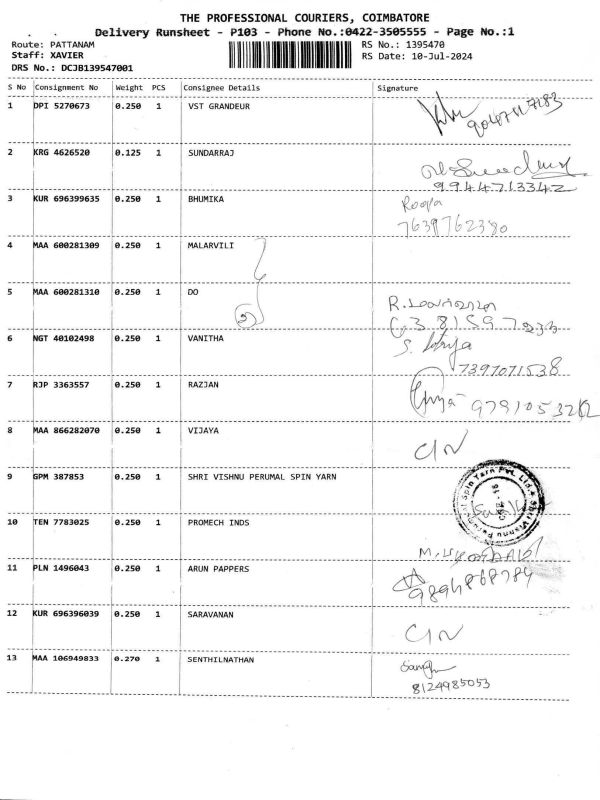 THE PROFESSIONAL COURIERS, COIMBATORE
Delivery Runsheet - P103 - Phone No.:0422-3505555 - Page No.:1
Route: PATTANAM
RS No.: 1395470
Staff: XAVIER
RS Date: 10-Jul-2024
DRS No.: DCJB139547001
S No Consignment No Weight PCS Consignee Details Signature
1 DPI 5270673 0.250 1 VST GRANDEUR
2 KRG 4626520 0.125 1 SUNDARRAJ
9944713342
3 KUR 696399635 0.250 1 BHUMIKA Roopa
7639762380
4 MAA 600281309 0.250 1 MALARVILI
5 MAA 600281310 0.250 1 DO
2
6 NGT 40102498 0.250 1 VANITHA
7397071538
7 RJP 3363557 0.250 1 RAZJAN
8 MAA 866282070 0.250 1 VIJAYA
9 GPM 387853 0.250 1 SHRI VISHNU PERUMAL SPIN YARN
10 TEN 7783025 0.250 1 PROMECH INDS
11 PLN 1496043 0.250 1 ARUN PAPPERS
9894868784
12 KUR 696396039 0.250 1 SARAVANAN
13 MAA 106949833 0.270 1 SENTHILNATHAN
8124985053